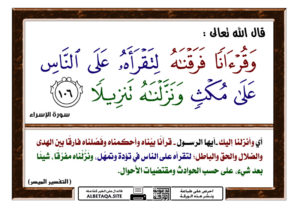 قال الله تعالى :
وَقُرْءَانًا فَرَقْنَـٰهُ لِتَقْرَأَهُۥ عَلَى ٱلنَّاسِ
عَلَىٰ مُكْثٍ وَنَزَّلْنَـٰهُ تَنزِيلًا ١٠٦
سورة الإسراء
أي وأنزلنا إليك ـ أيها الرسول ـ قرآنا بيَّناه وأحكمناه وفصَّلناه فارقا بين الهدى
والضلال والحق والباطل؛ لتقرأه على الناس في تؤدة وتمهُّل، ونزَّلناه مفرَّقا، شيئا
بعد شيء، على حسب الحوادث ومقتضيات الأحوال.
(التفسير الميسر)
ALBETAQA.SITE